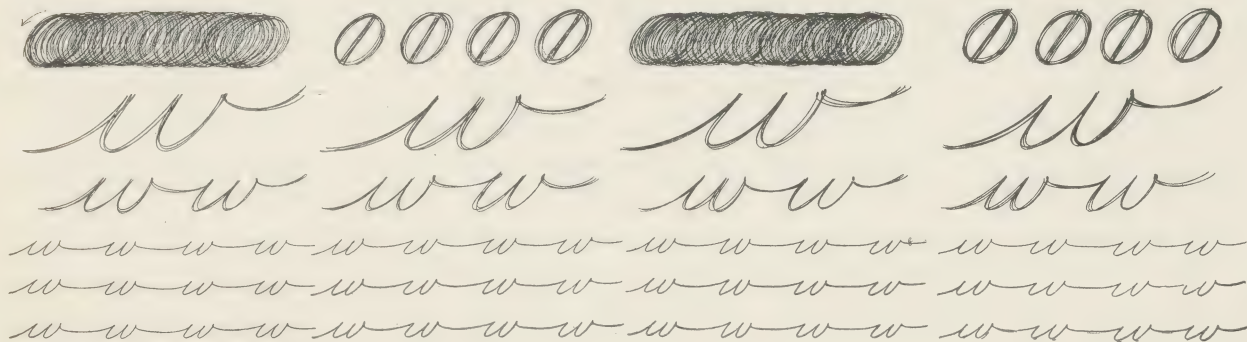 w w w w
w w w w w w w w
w w w w w w w w w w w w w w w w
w w w w w w w w w w w w w w w w
w w w w w w w w w w w w w w w w